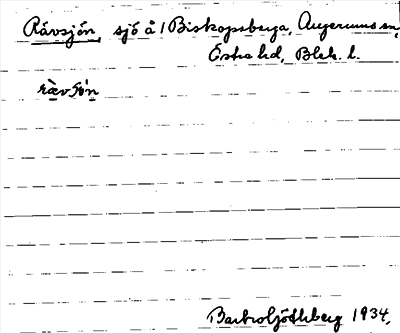 Rävsjön, sjö å 1 Biskopsberga, Augerums sn,
Östra hd, Blek. l.
Barbro Göthberg 1934.